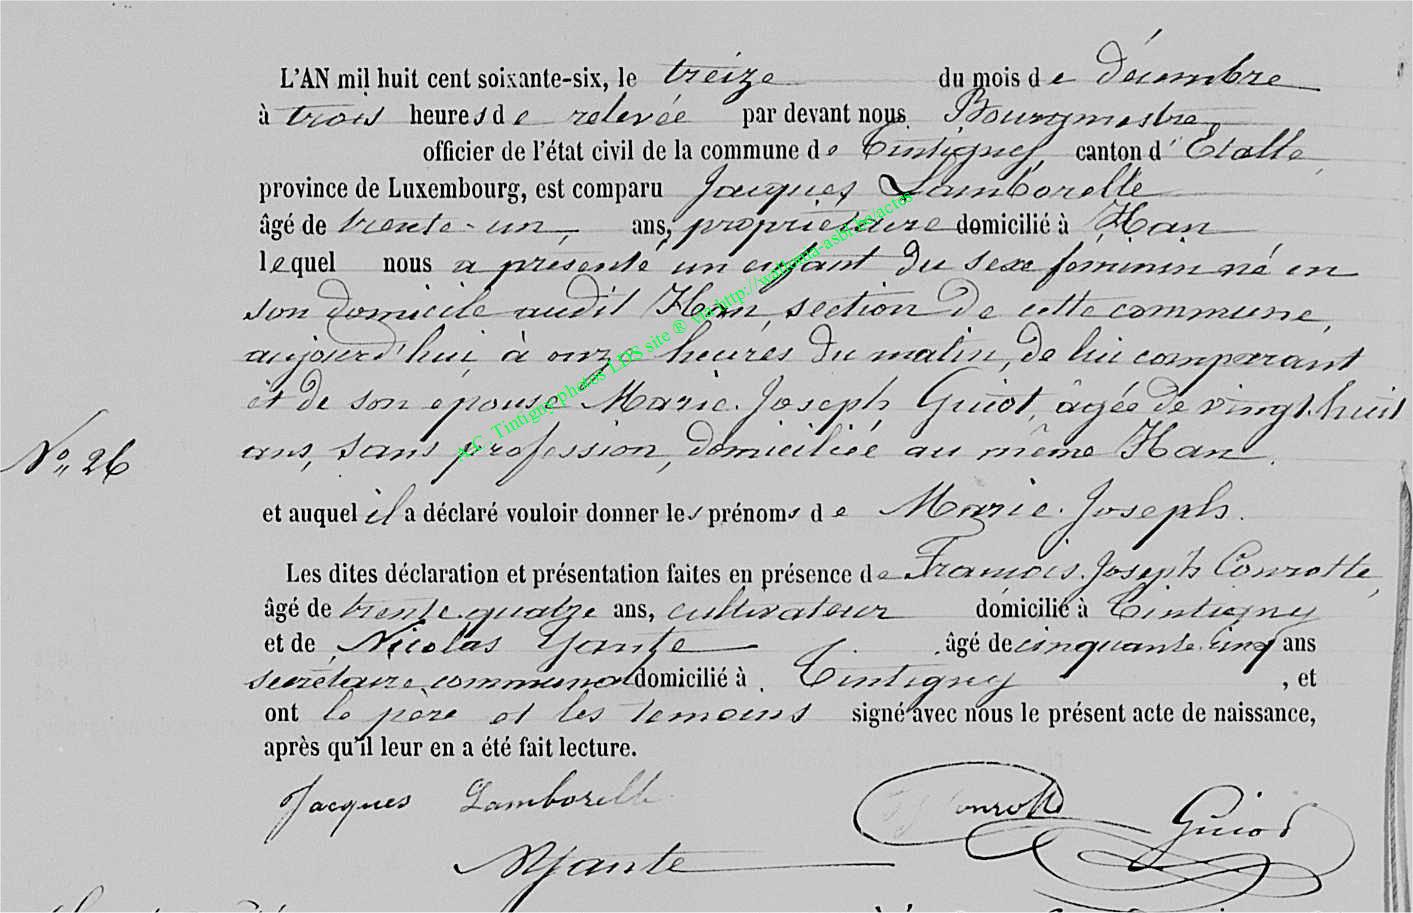 L'AN mil huit cent soixante-six, le treize du mois de décembre
à trois heures de relevée par devant nous Bourgmestre
officier de l'état civil de la commune de Tintigny, canton d'Etalle
province de Luxembourg, est comparu Jacques Lamborelle
âgé de trente-un ans, propriétaire domicilié à Han
lequel nous a présenté un enfant du sexe féminin né en
son domicile audit Han, section de cette commune,
aujourd'hui, à onze heures du matin, de lui comparant
et de son épouse Marie-Joseph Guiot, âgée de vingt-huit
ans, sans profession, domiciliée au même Han.
N° 26
et auquel il a déclaré vouloir donner les prénoms de Marie-Joseph.
Les dites déclaration et présentation faites en présence de François-Joseph Conrotte,
âgé de trente-quatre ans, cultivateur domicilié à Tintigny
et de Nicolas Yante âgé de cinquante-cinq ans
secrétaire communal domicilié à Tintigny, et
ont le père et les témoins signé avec nous le présent acte de naissance,
après qu'il leur en a été fait lecture.
Jacques Lamborelle Conrotte Guiot
NYante
A.C. Tintigny photos LDS site ® via http://wallonia-asbl.be/actes